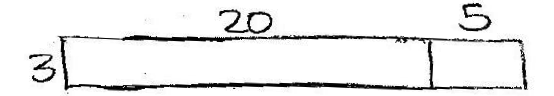 20 5
3